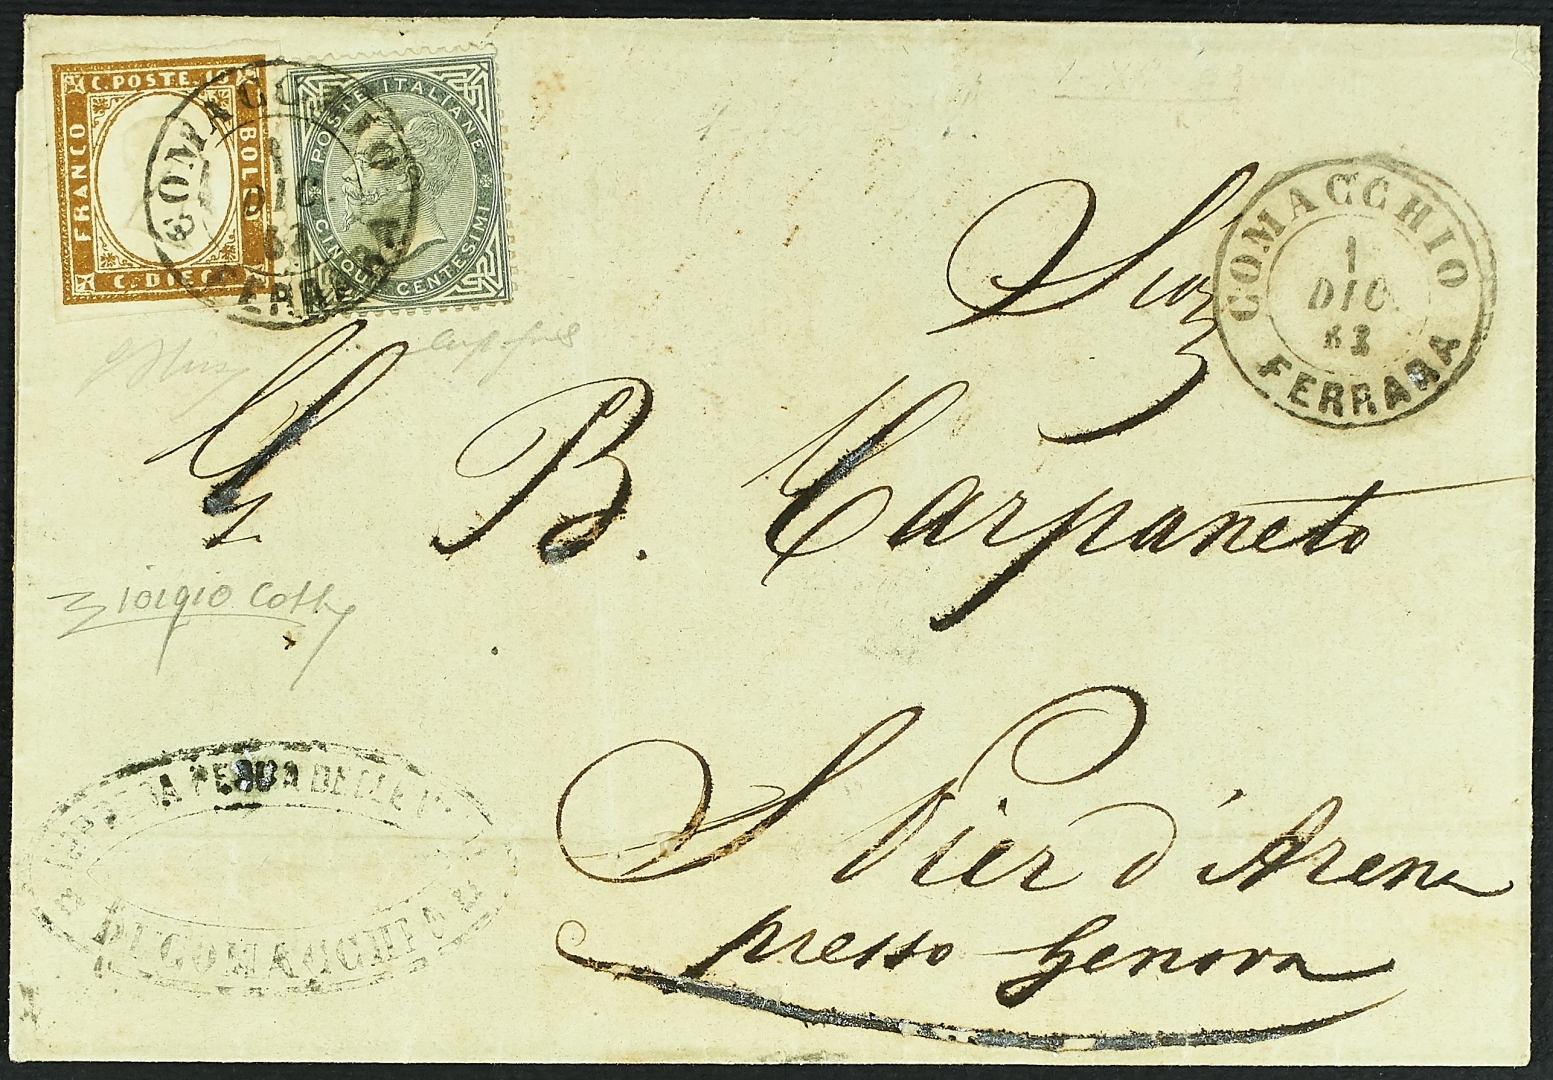 C. POSTE. 10
FRANCO
BOLLO
C. DIECI
POSTE ITALIANE
CINQUE CENTESIMI
COMACCHIO
1
DIC
63
FERRARA
COMACCHIO
1
DIC
63
FERRARA
Sig
G B. Carpaneto
Giorgio Colla
S Pier d'Arena
presso Genova
AZIENDA PESCA DELLE
DI COMACCHIO